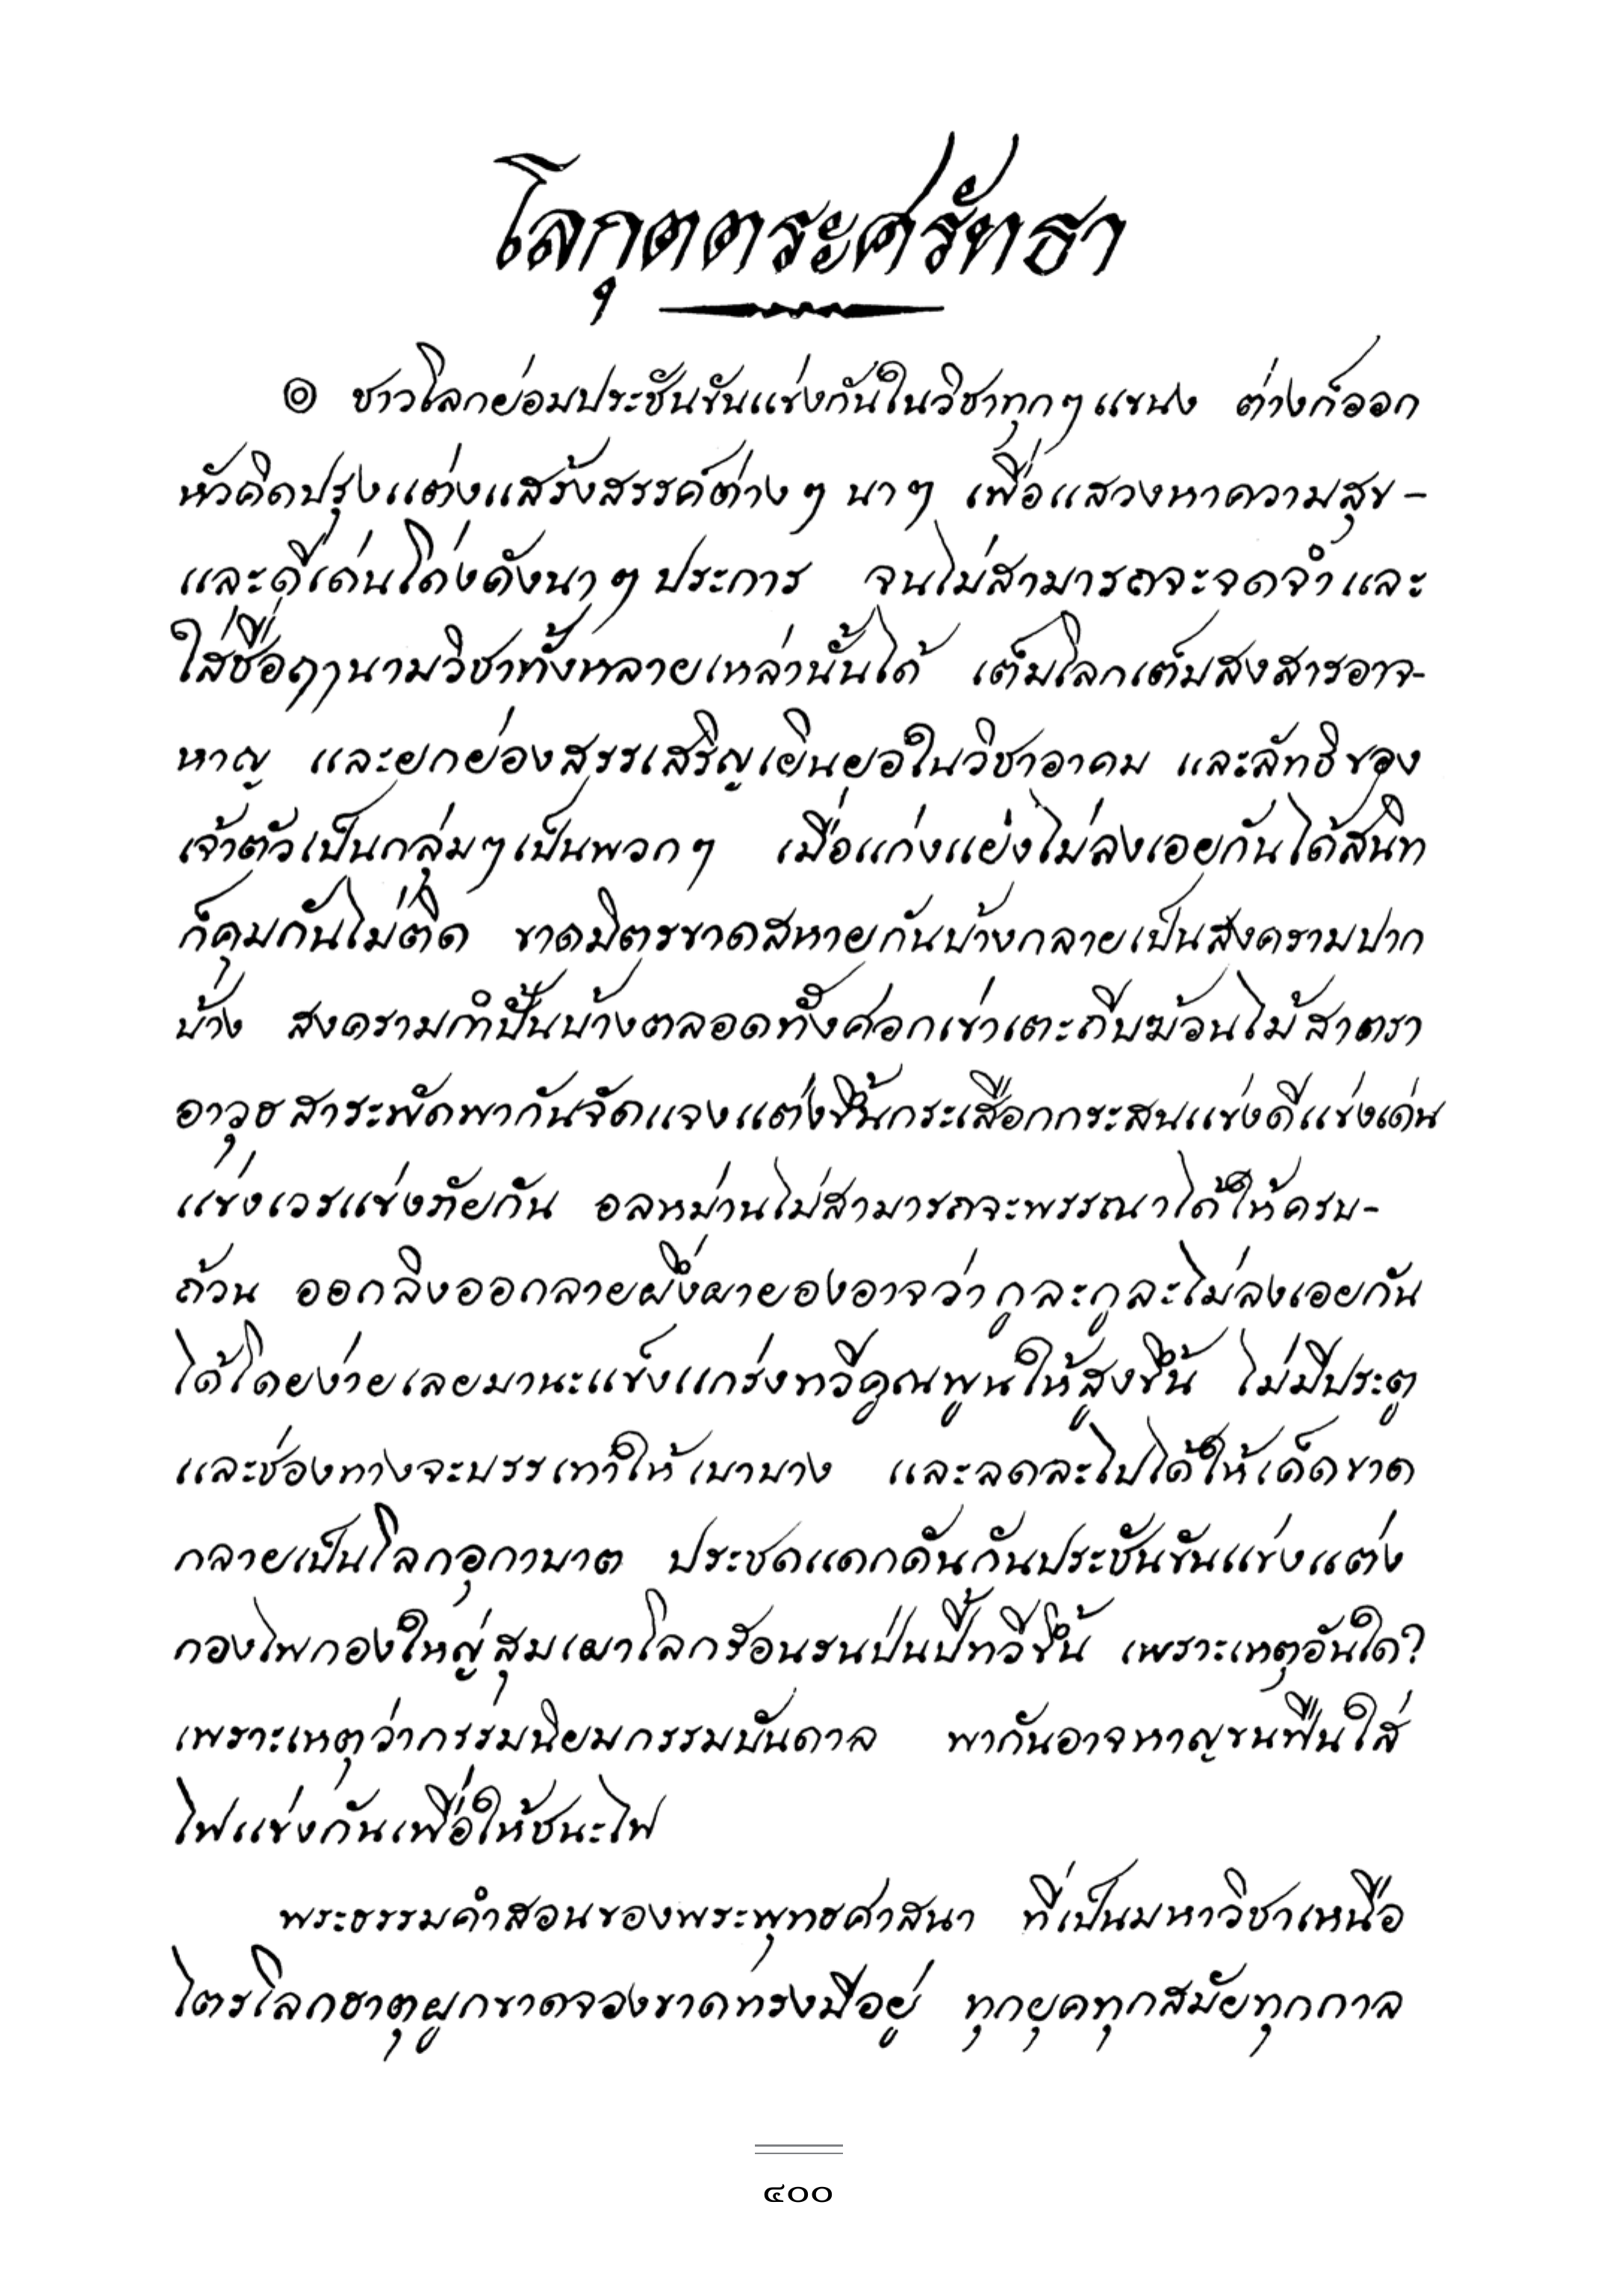 โลกุตตระศรัทธา
๏ ชาวโลกย่อมประชันขันแข่งกันในวิชาทุกๆแขนง ต่างก็ออก
หัวคิดปรุงแต่งแสร้งสรรค์ต่างๆ นาๆ เพื่อแสวงหาความสุข -
และดีเด่นโด่งดังนาๆ ประการ จนไม่สามารถจะจดจำและ
ใส่ชื่อฦานามวิชาทั้งหลายเหล่านั้นได้ เต็มโลกเต็มสงสารอาจ-
หาญ และยกย่องสรรเสริญเยินยอในวิชาอาคม และลัทธิของ
เจ้าตัวเป็นกลุ่มๆเป็นพวกๆ เมื่อแก่งแย่งไม่ลงเอยกันได้สนิท
ก็คุมกันไม่ติด ขาดมิตรขาดสหายกันบ้างกลายเป็นสงครามปาก
บ้าง สงครามกำปั้นบ้างตลอดทั้งศอกเข่าเตะถีบฆ้อนไม้สาตรา
อาวุธสาระพัดพากันจัดแจงแต่งขึ้นกระเสือกกระสนแข่งดีแข่งเด่น
แข่งเวรแข่งภัยกัน อลหม่านไม่สามารถจะพรรณาได้ให้ครบ-
ถ้วน ออกลิงออกลายผึ่งผายองอาจว่ากูละกูละไม่ลงเอยกัน
ได้โดยง่ายเลยมานะแข็งแกร่งทวีคูณพูนให้สูงขึ้น ไม่มีประตู
และช่องทางจะบรรเทาให้เบาบาง และลดละไปได้ให้เด็ดขาด
กลายเป็นโลกอุกาบาต ประชดแดกดันกันประชันขันแข่งแต่ง
กองไพกองใหญ่สุมเผาโลกร้อนรนป่นปี้ทวีขึ้น เพราะเหตุอันใด?
เพราะเหตุว่ากรรมนิยมกรรมบันดาล พากันอาจหาญขนฟืนใส่
ไฟแข่งกันเพื่อให้ชนะไฟ
พระธรรมคำสอนของพระพุทธศาสนา ที่เป็นมหาวิชาเหนือ
ไตรโลกธาตุผูกขาดจองขาดทรงมีอยู่ ทุกยุคทุกสมัยทุกกาล
๔๐๐